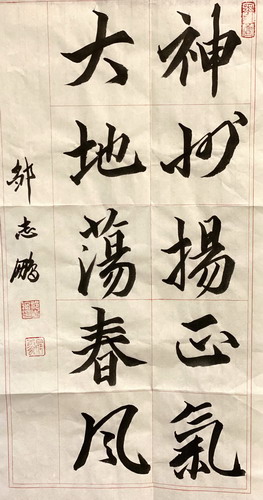 神州揚正氣
大地蕩春風
郝志鵬